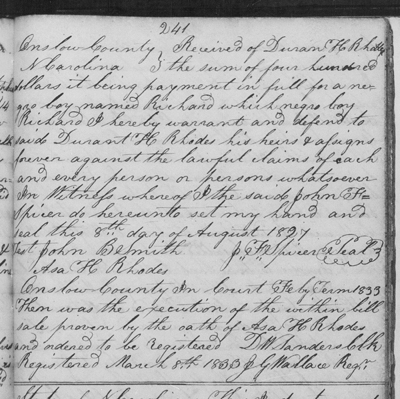 241
Onslow County } Received of Durant H Rhodes
N Carolina } the sum of four hundred
dollars it being payment in full for a ne-
gro boy named Richard which negro boy
Richard I hereby warrant and defend to
said Durant H Rhodes his heirs & assigns
forever against the lawful claims of each
and every person or persons whatsoever
In Witness whereof I the said John F
Spicer do hereunto set my hand and
seal this 8th day of August 1827
Test John B Smith J. F. Spicer {Seal}
Asa H Rhodes
Onslow County In Court Feby Term 1833
Then was the execution of the within bill
sale proven by the oath of Asa H Rhodes
and ordered to be registered D W Sanders Clk
Registered March 8th 1833 J G Wallace Regr